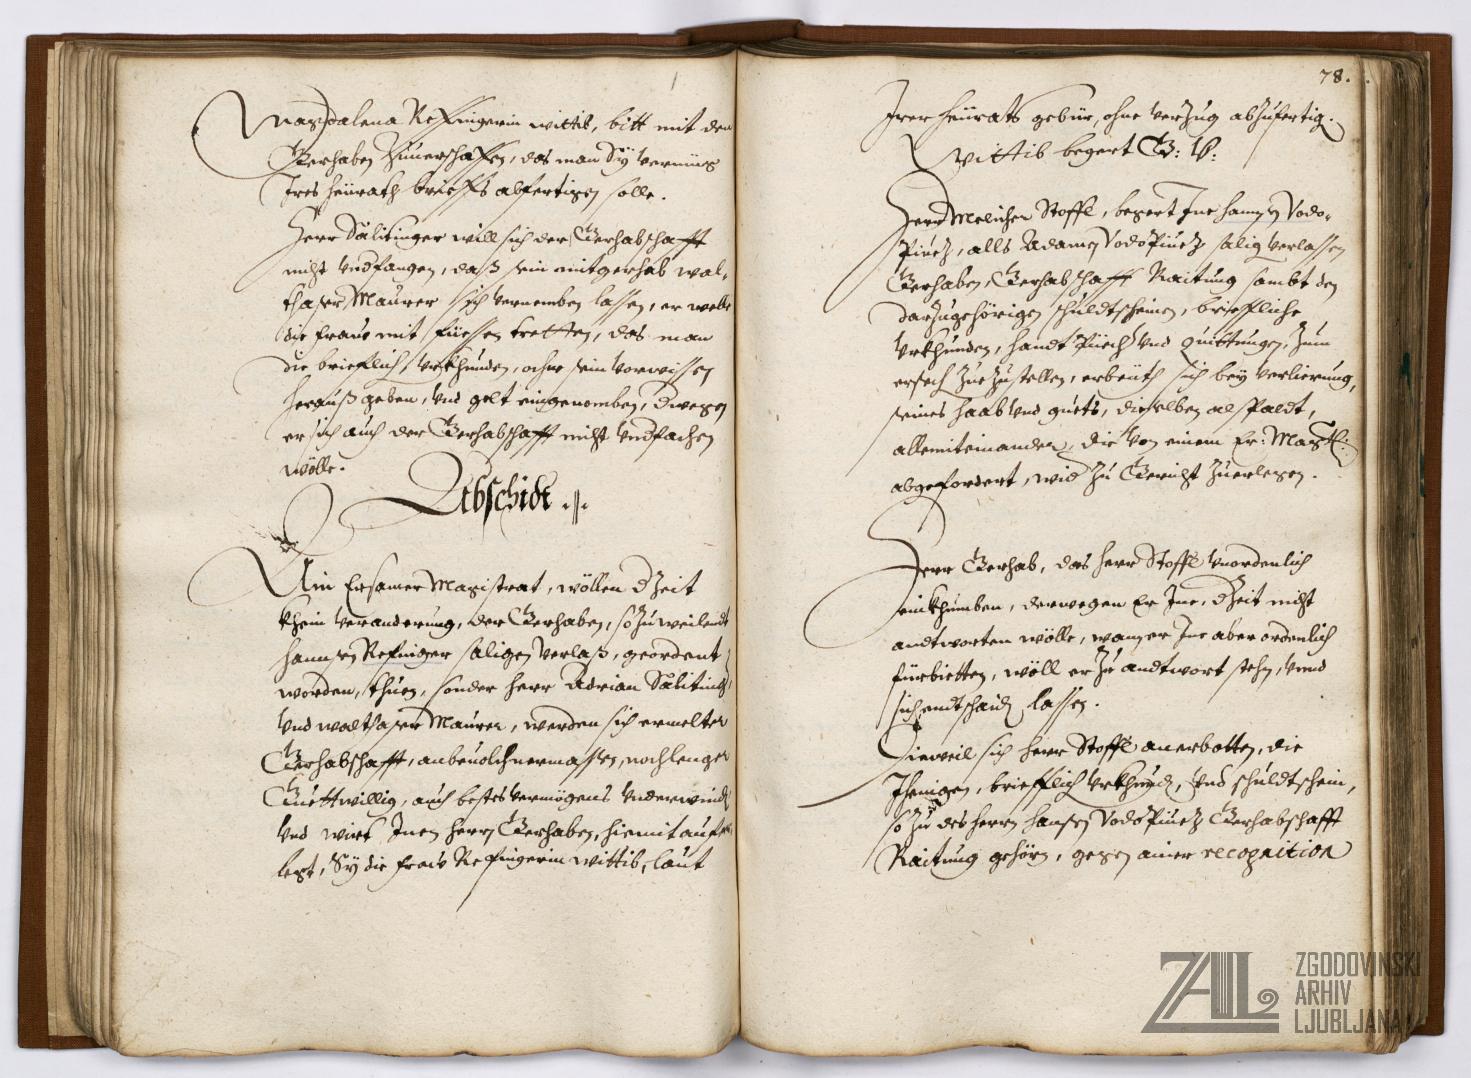 Magdalena Resingerin wittib, bitt mit den
Gerhaben zuuerschaffen, das man Sÿ vermüg
Ires heürath brieffs abfertigen solle.
Herr Sälitinger will sich der Gerhabschafft
nicht vndfangen, daß sein mitgerhab wal-
thaser Maurer sich vernemben lassen, er welle
die fraw mit füessen tretten, das man
die brieflich vrkhunden, ohne sein vorwissen
herauß geben, vnd gelt eingenomben, dwegen
er sich auch der Gerhabschafft nicht vndfachen
wölle.
Abschidt
Ain Ersamer Magistrat, wöllen dZeit
khein veranderung, der Gerhaben, so zu weilendt
hannsen Resinger saligen verlaß, geordent
worden, thuen, sonder herr Adrian Sälitinger
vnd walthaser Maurer, werden sich ermelter
Gerhabschafft, anbeuolchnermassen, noch lenger
Guettwillig, auch bestes vermögens vnderwinden
vnd wirt Inen herrn Gerhaben, hiemit auf
legt, Sÿ die fraw Resingerin wittib, laut
78.
Irer heürats gebür, ohne verzug abzufertigen.
Wittib begert G: V:
Herr Melicher Stoffl, begert Ine hannsen Vodo-
Piuez, alls Adamen Vodopiuez salig verlassen
Gerhaben, Gerhabschafft Raitung sambt den
darzugehörigen schuldtscheinen, brieffliche
vrkhunden, handt Püech vnd quittungen, zum
ersech zuezustellen, erbeüth sich bey verlierung,
seines haab vnd guets, dieselben alspaldt,
allemiteinander, die von einem Er: Magt:
abgefordert, wid zu Gericht zuerlegen.
Herr Gerhab, das herr Stoffl vnordenlich
einkhumben, derwegen Er Ine, dZeit nicht
andtworten wölle, wann er Ine aber ordenlich
fürbietten, wöll er zu andtwort stehn, vnnd
sich endtschaiden lassen.
Dieweil sich herr Stoffl anerbotten, die
Ihenigen, brieflich vrkhund, vnd schuldtschein,
so zu des herrn hansen Vodopiuez Gerhabschafft
Raitung gehörn, gegen ainer recognition
ZAL
ZGODOVINSKI
ARHIV
LJUBLJANA